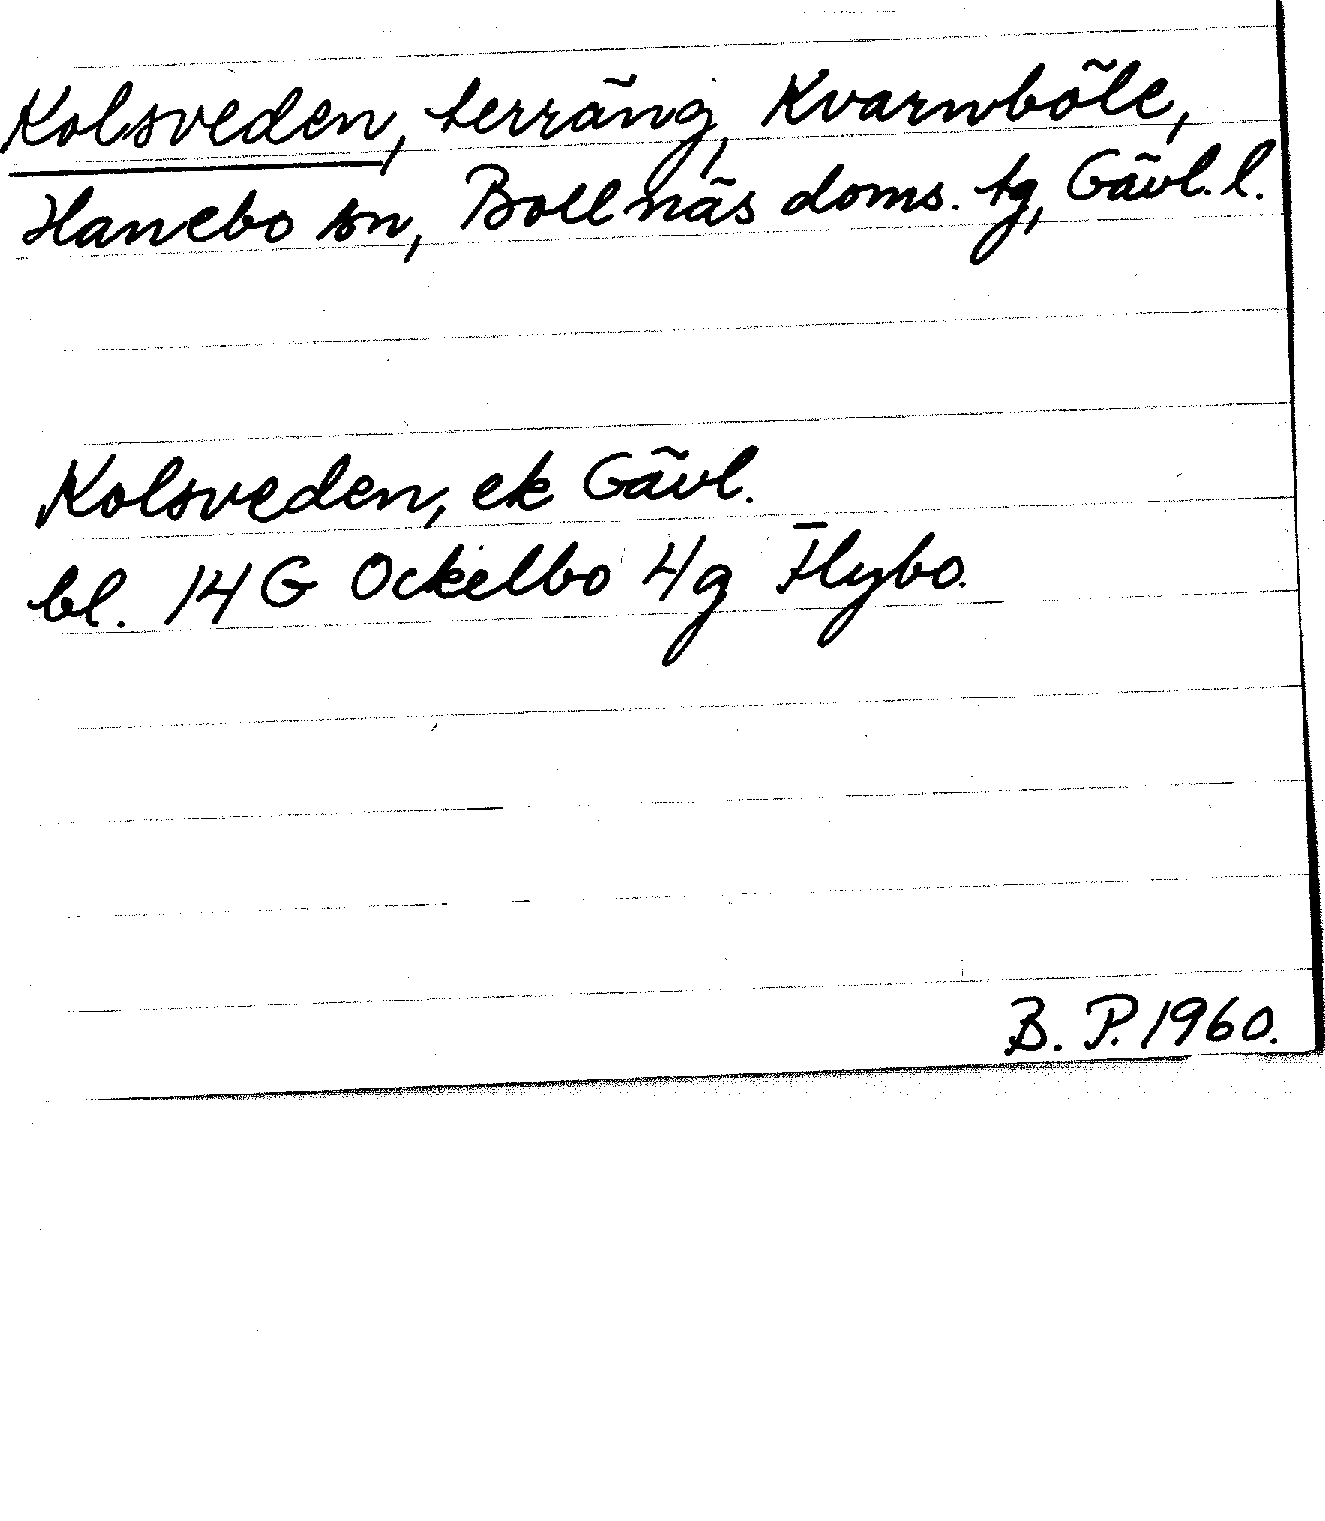 Kolsveden, terräng, Kvarnböle,
Hanebo sn, Bollnäs doms. tg, Gävl. l.
Kolsveden, ek Gävl.
bl. 14 G Ockelbo 4g Flybo.
B. P. 1960.